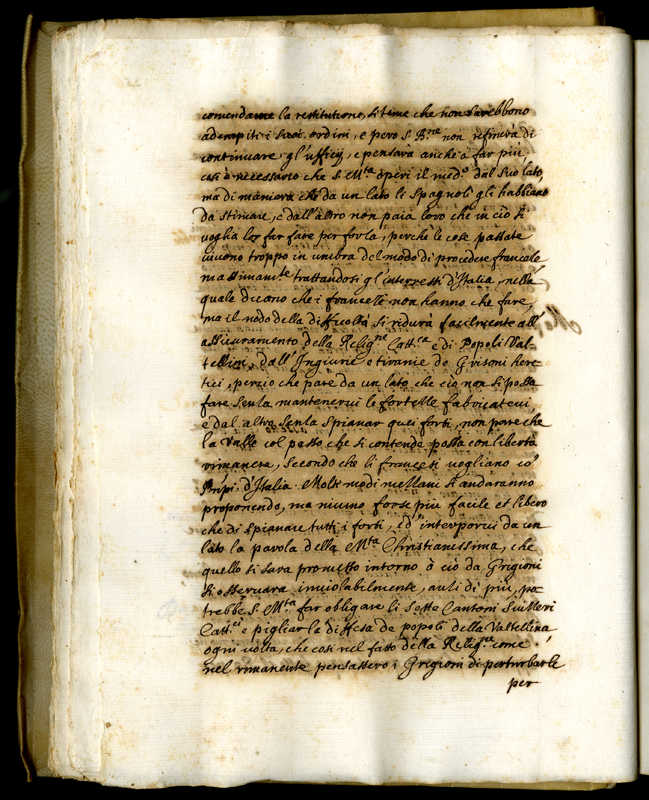 comendarne la restitutione, si teme che non sarebbono
adempiti i suoi ordini, e però S. B.ne non resterà di
continuare gl'ufficij, e pensarà anche à far più.
così è necessario che S. M.ta operi il med.o dal suo lato,
ma di maniera che da un lato li Spagnoli gli habbiano
da stimare, e dall'altro non paia loro che in ciò si
voglia lor far fare per forza, perche le cose passate
vivono troppo in umbra del modo di procedere francese
massimam.te trattandosi gl'interessi d'Italia, nella
quale dicono che i francesi non hanno che fare,
ma il nodo della difficoltà si ridurà facilmente all'
assicuramento della Relig.ne Catt.ca e di Popoli Val-
tellini, dall'Ingiurie e tiranie de Grisoni here-
tici, percio che pare da un lato che ciò non si possa
fare senza mantenervi le fortezze fabricatevi,
e dal altro senza spianar quei forti, non pare che
la Valle col passo che si contende possa con libertà
rimanere, secondo che li francesi vogliano co'
Pnpi. d'Italia. Molti modi mezzani si andaranno
proponendo, ma niuno forse più facile et libero
che di spianare tutti i forti, ed' interporvi da un
lato la parola della M.ta Christianessima, che
quello si sara promesso intorno à ciò da Grigioni
si osservara inviolabilmente, anzi di più, po-
trebbe S. M.ta far obligare li sette Cantoni Suizzeri
Catt.ci e pigliar la diffesa de popoli della Valtellina
ogni volta, che così nel fatto della Relig.ne come
nel rimanente pensassero i Grigioni di perturbarli
per